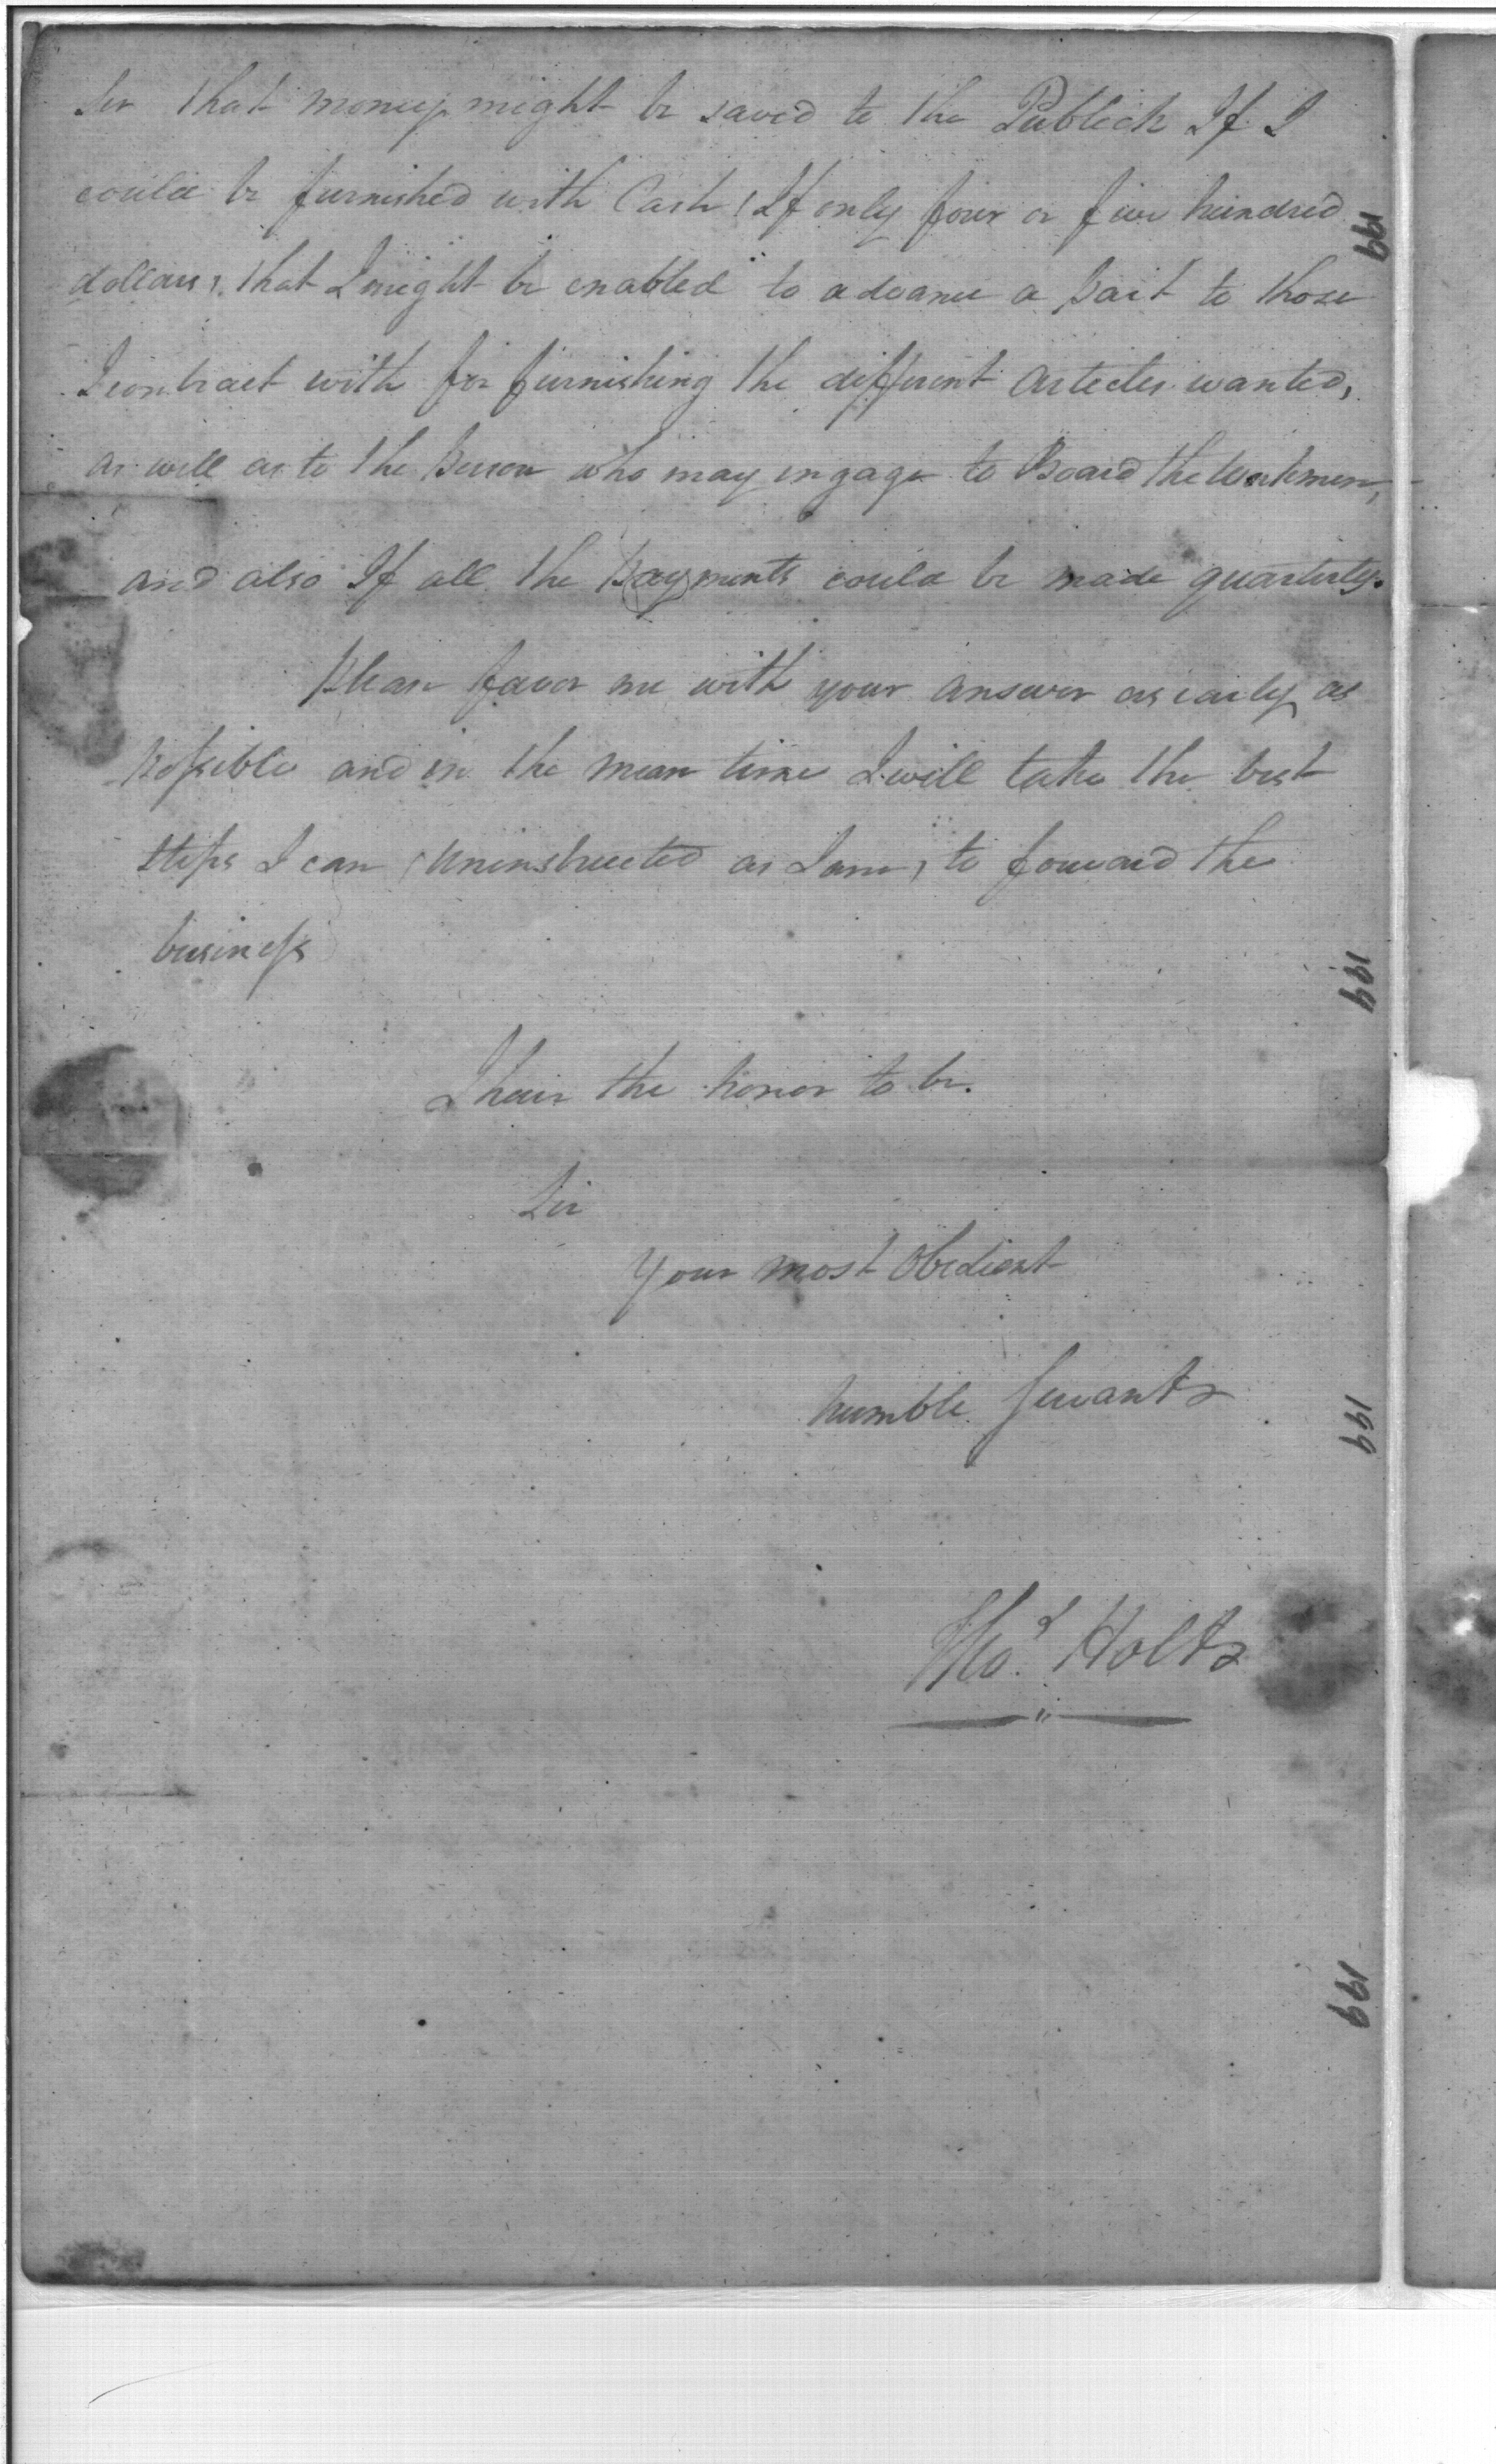 Sir that money might be saved to the Publick If I
could be furnished with Cash (If only four or five hundred
dollars) that I might be enabled to advance a part to those
I contract with for furnishing the different Articles wanted,
as well as to the Person who may engage to Board the Workmen,
and also If all the Payments could be made quarterly.
Please favor me with your answer as early as
possible and in the mean time I will take the best
steps I can (uninstructed as I am) to forward the
business
I have the honor to be.
Sir
Your most Obedient
humble Servant
Thos. Holt
199
199
199
199